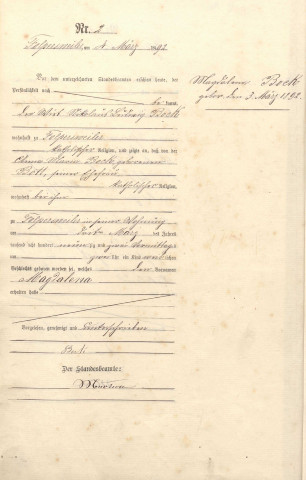 Nr. 2
am 4. März 1892
Vor dem unterzeichneten Standesbeamten erschien heute, der
Persönlichkeit nach
be kannt,
der Wirt Nikolaus Ludwig Bock
wohnhaft zu Folpersweiler
katholischer Religion, und zeigte an, daß von der
Bock geborenen
seiner Ehefrau
katholischer Religion,
wohnhaft bei ihm
zu Folpersweiler in seiner Wohnung
am März des Jahres
tausend acht hundert neunzig und zwei Vormittags
um Uhr ein Kind
Geschlechts geboren worden sei, welches den Vornamen
Magdalena
erhalten habe
Vorgelesen, genehmigt und unterschrieben
Bock
Der Standesbeamte:
Magdalena Bock
gebor. den 3. März 1892.